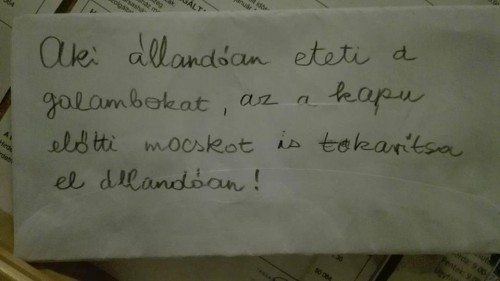 Aki állandóan eteti a
galambokat, az a kapu
előtti mocskot is takarítsa
el állandóan!